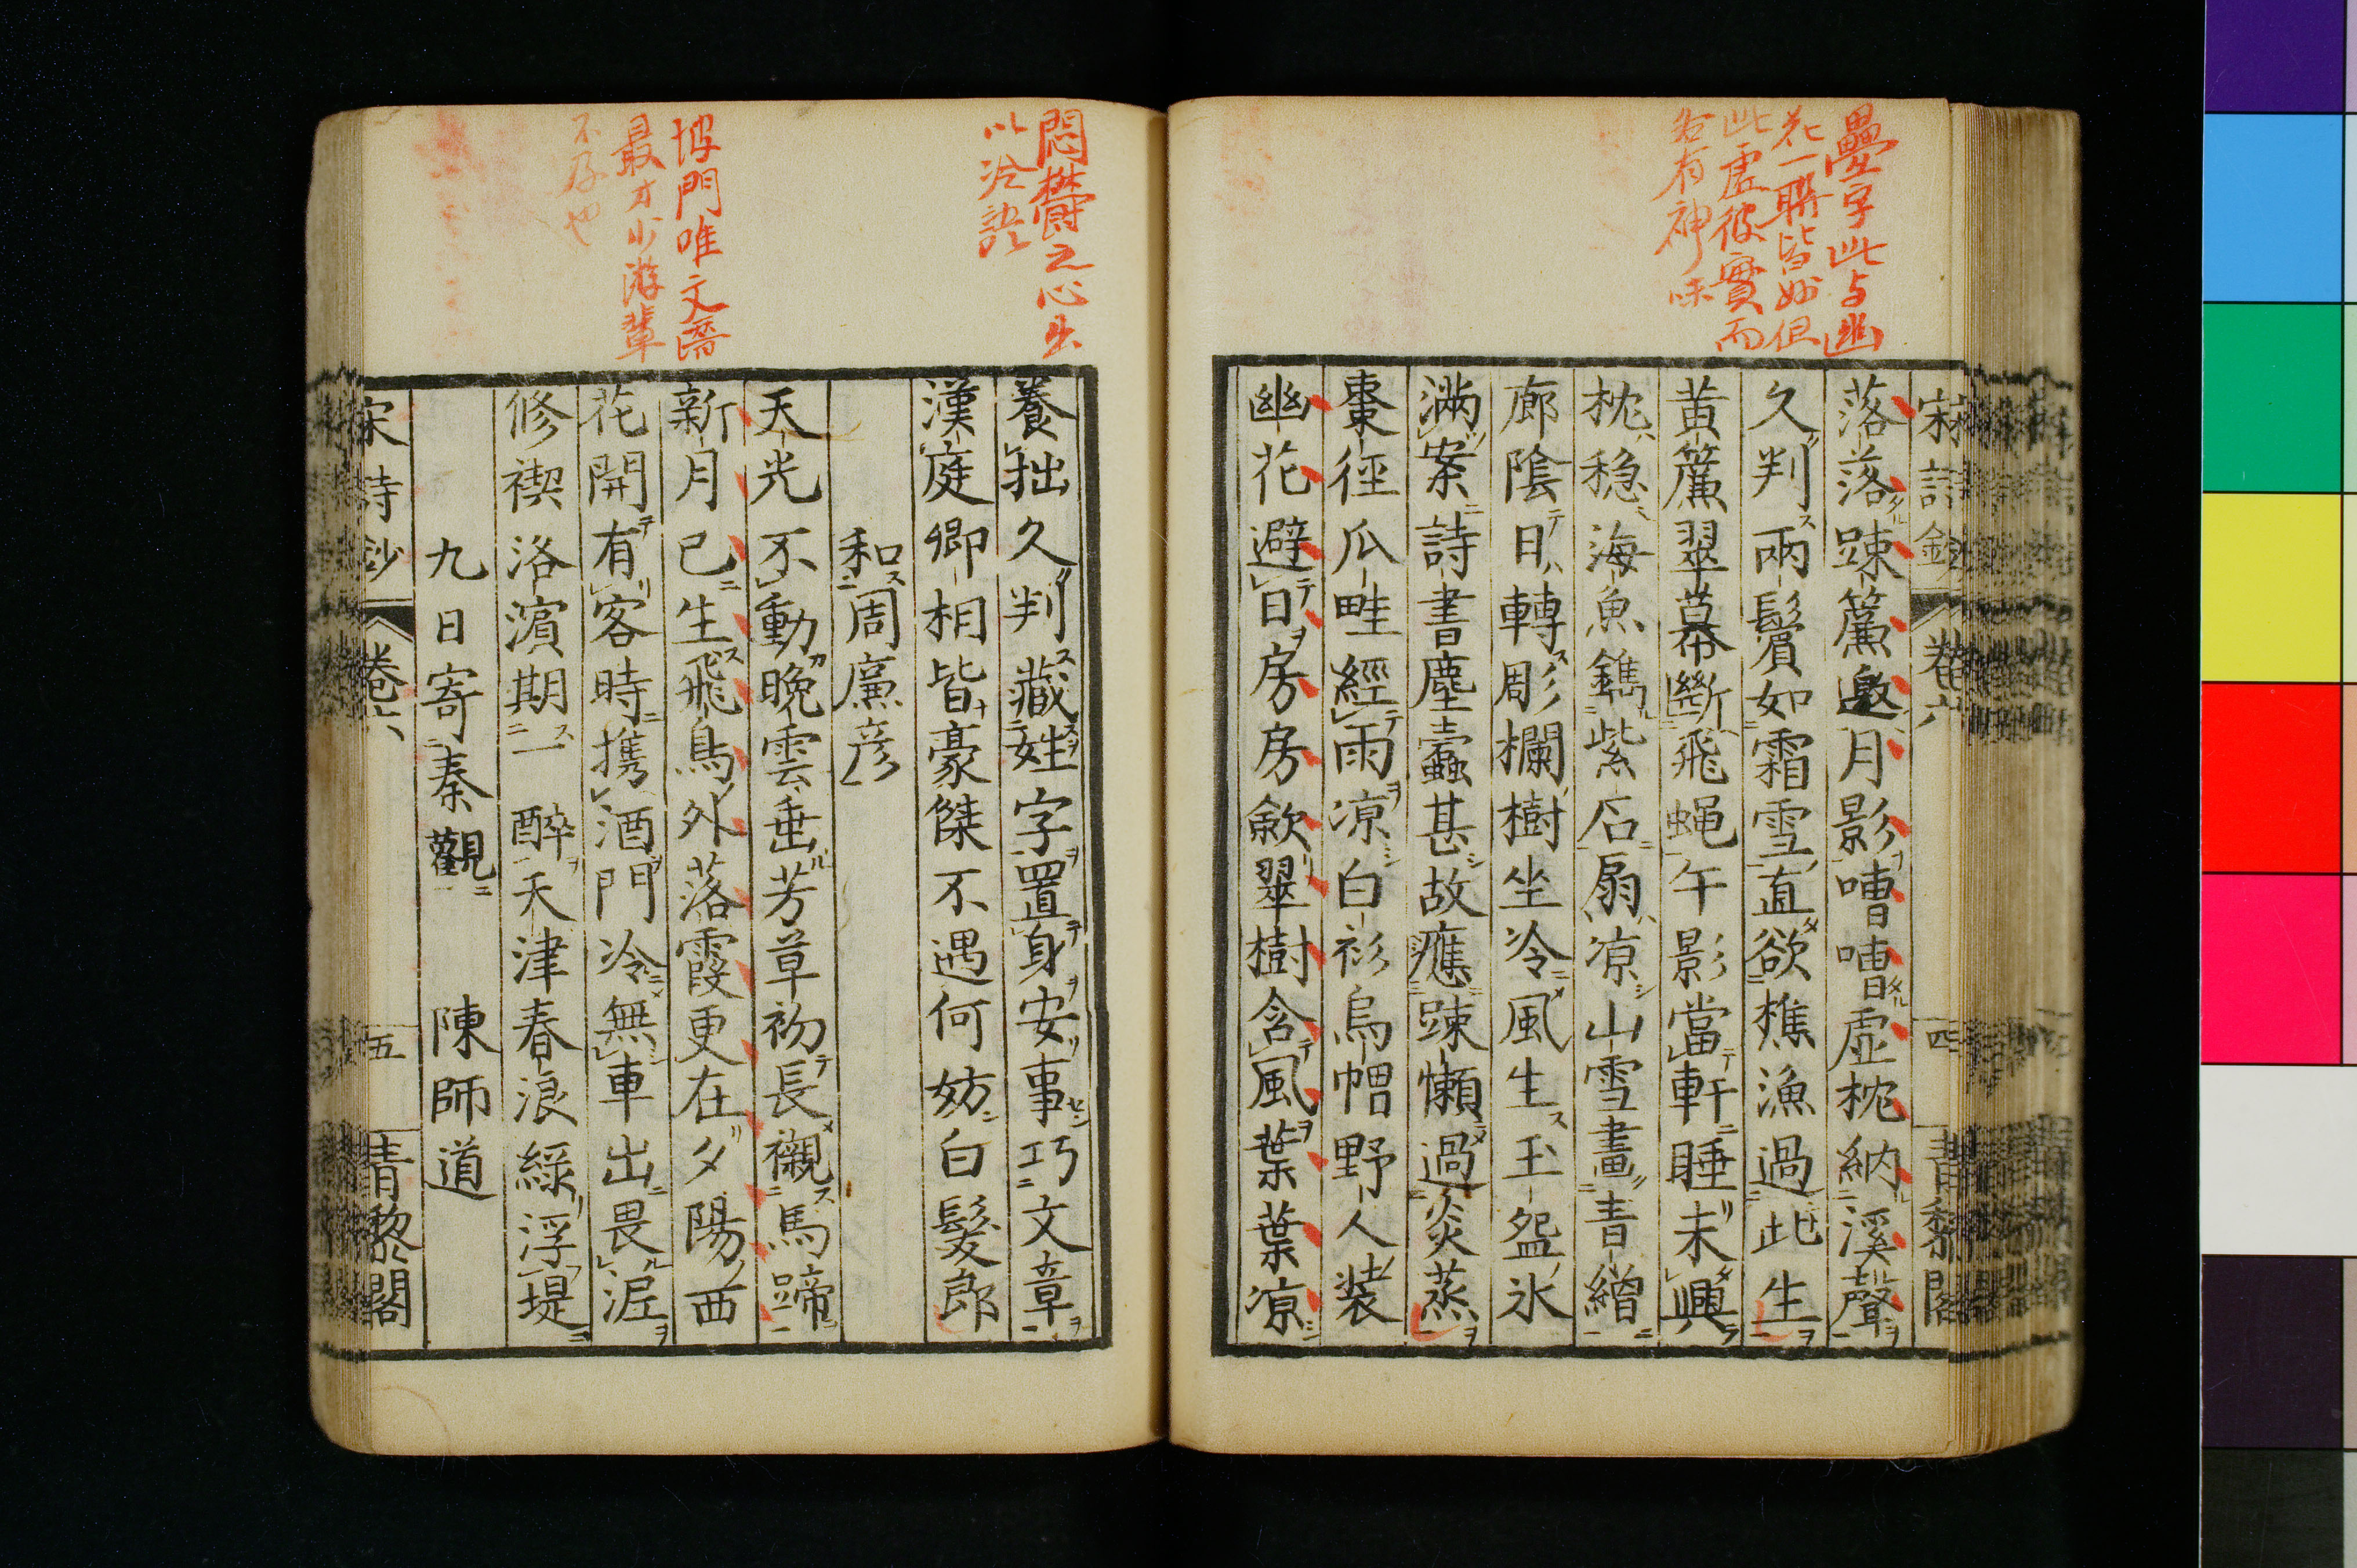 疊字此与幽
花一聯皆妙但
此虚彼實而
各有神味
宋詩鈔 卷六 四 青黎閣
落落踈簾邀月影嘈嘈虚枕納溪聲
久判兩鬢如霜雪直欲樵漁過此生
黄簾翠幕斷飛蝿午影當軒睡未興
枕穏海魚鐫紫石扇凉山雪畫青繒
廊陰日轉彫欄樹坐冷風生玉盌氷
滿案詩書塵蠹甚故應踈懶過炎蒸
棗徑瓜畦經雨凉白衫烏帽野人装
幽花避日房房歛翠樹含風葉葉凉
悶欝之心出
以冷語
坡門唯文潛
最才少游輩
不及也
養拙久判藏姓字置身安事巧文章
漢庭卿相皆豪傑不遇何妨白髮郎
和周廉彦
天光不動晩雲垂芳草初長襯馬蹄
新月已生飛鳥外落霞更在夕陽西
花開有客時携酒門冷無車出畏泥
修禊洛濱期一醉天津春浪緑浮堤
九日寄秦觀 陳師道
宋詩鈔 卷六 五 青黎閣